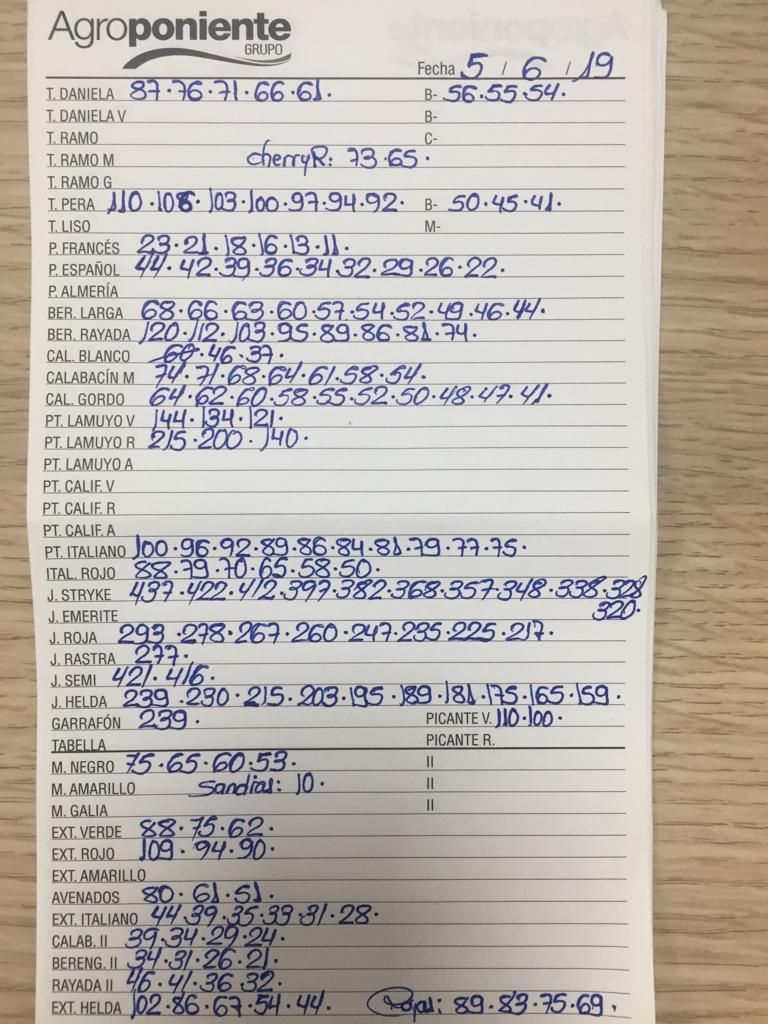 Agroponiente
GRUPO
Fecha 5 / 6 / 19
T. DANIELA 87·76·71·66·61· B- 56·55·54·
T. DANIELA V B-
T. RAMO C-
T. RAMO M cherry R: 73·65·
T. RAMO G
T. PERA 110·106·103·100·97·94·92· B- 50·45·41·
T. LISO M-
P. FRANCÉS 23·21·18·16·13·11·
P. ESPAÑOL 44·42·39·36·34·32·29·26·22·
P. ALMERÍA
BER. LARGA 68·66·63·60·57·54·52·49·46·44·
BER. RAYADA 120·112·103·95·89·86·81·74·
CAL. BLANCO 60·46·37·
CALABACÍN M 74·71·68·64·61·58·54·
CAL. GORDO 64·62·60·58·55·52·50·48·47·41·
PT. LAMUYO V 144·134·121·
PT. LAMUYO R 215·200·140·
PT. LAMUYO A
PT. CALIF. V
PT. CALIF. R
PT. CALIF. A
PT. ITALIANO 100·96·92·89·86·84·81·79·77·75·
ITAL. ROJO 88·79·70·65·58·50·
J. STRYKE 437·422·412·397·382·368·357·348·338·328
J. EMERITE 320·
J. ROJA 293·278·267·260·247·235·225·217·
J. RASTRA 277·
J. SEMI 421·416·
J. HELDA 239·230·215·203·195·189·181·175·165·159·
GARRAFÓN 239· PICANTE V. 110·100·
TABELLA PICANTE R.
M. NEGRO 75·65·60·53· II
M. AMARILLO Sandias: 10· II
M. GALIA II
EXT. VERDE 88·75·62·
EXT. ROJO 109·94·90·
EXT. AMARILLO
AVENADOS 80·61·51·
EXT. ITALIANO 44·39·35·33·31·28·
CALAB. II 39·34·29·24·
BERENG. II 34·31·26·21·
RAYADA II 46·41·36·32·
EXT. HELDA 102·86·67·54·44· Rojas: 89·83·75·69·